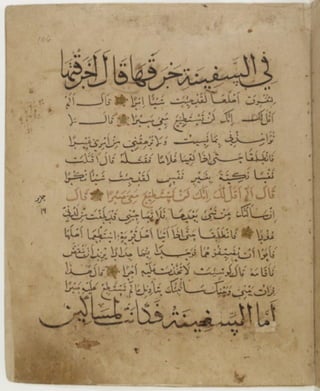 في السفينة خرقها قال أخرقتها
لتغرق أهلها لقد جئت شيئا إمرا قال ألم
أقل لك إنك لن تستطيع معي صبرا قال لا
تؤاخذني بما نسيت ولا ترهقني من أمري عسرا
فانطلقا حتى إذا لقيا غلاما فقتله قال أقتلت
نفسا زكية بغير نفس لقد جئت شيئا نكرا
قال ألم أقل لك إنك لن تستطيع معي صبرا قال
إن سألتك عن شيء بعدها فلا تصاحبني قد بلغت من لدني
عذرا فانطلقا حتى إذا أتيا أهل قرية استطعما أهلها
فأبوا أن يضيفوهما فوجدا فيها جدارا يريد أن ينقض
فأقامه قال لو شئت لاتخذت عليه أجرا قال هذا
فراق بيني وبينك سأنبئك بتأويل ما لم تستطع عليه صبرا
أما السفينة فكانت لمساكين